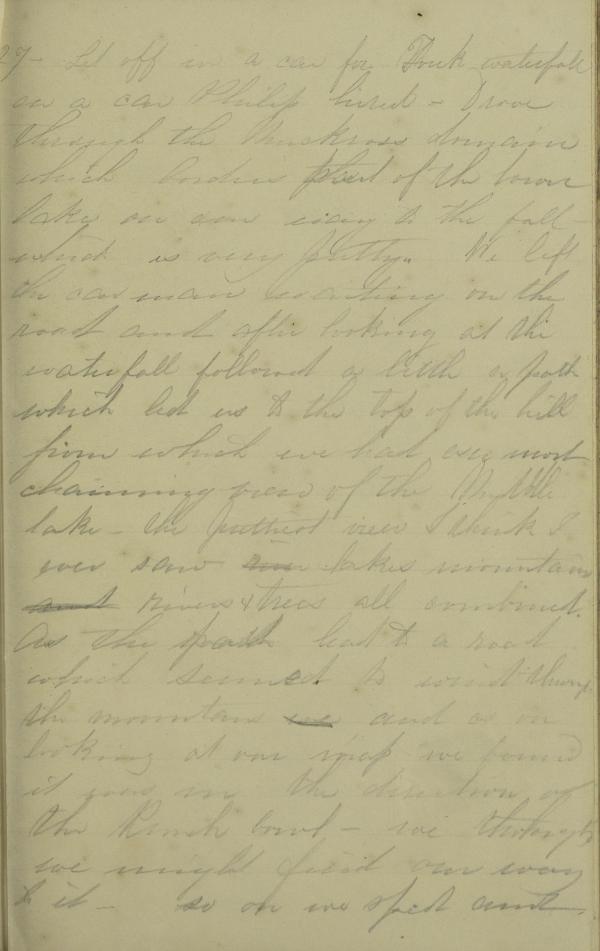 27 - Set off in a car for Tork waterfall
on a car Philip hired - Drove
through the Muckross domain
which borders part of the lower
lake on our way to the fall -
which is very pretty. We left
the car man waiting on the
road and after looking at the
waterfall followed a little path
which led us to the top of the hill
from which we had a most
charming view of the Middle
lake - the prettiest view I think I
ever saw lakes mountain
and rivers & trees all combined.
As the path lead to a road
which seemed to wind through
the mountains and as on
looking at our map we found
it was in the direction of
the Punch bowl - we thought
we might find our way
to it - so on we sped and